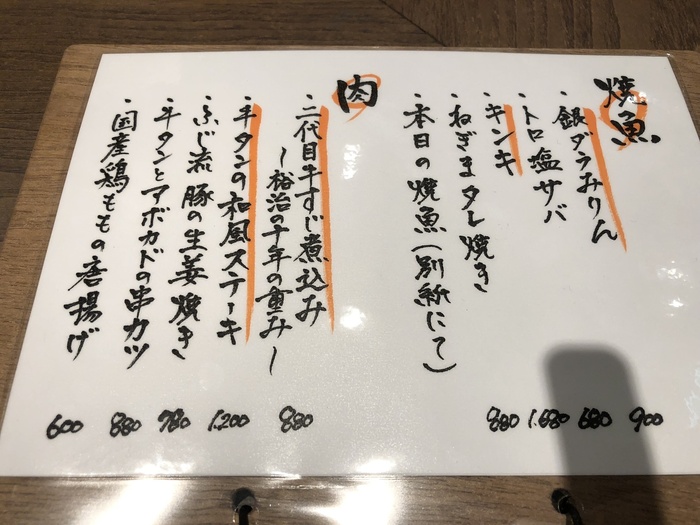 焼魚
・銀ダラみりん 900
・トロ塩サバ 680
・キンキ 1.680
・ねぎまタレ焼き 880
・本日の焼魚(別紙にて)
肉
・二代目牛すじ煮込み 880
〜裕治の千年の重み〜
・牛タンの和風ステーキ 1.200
・ふじ流豚の生姜焼き 780
・牛タンとアボカドの串カツ 880
・国産鶏ももの唐揚げ 600